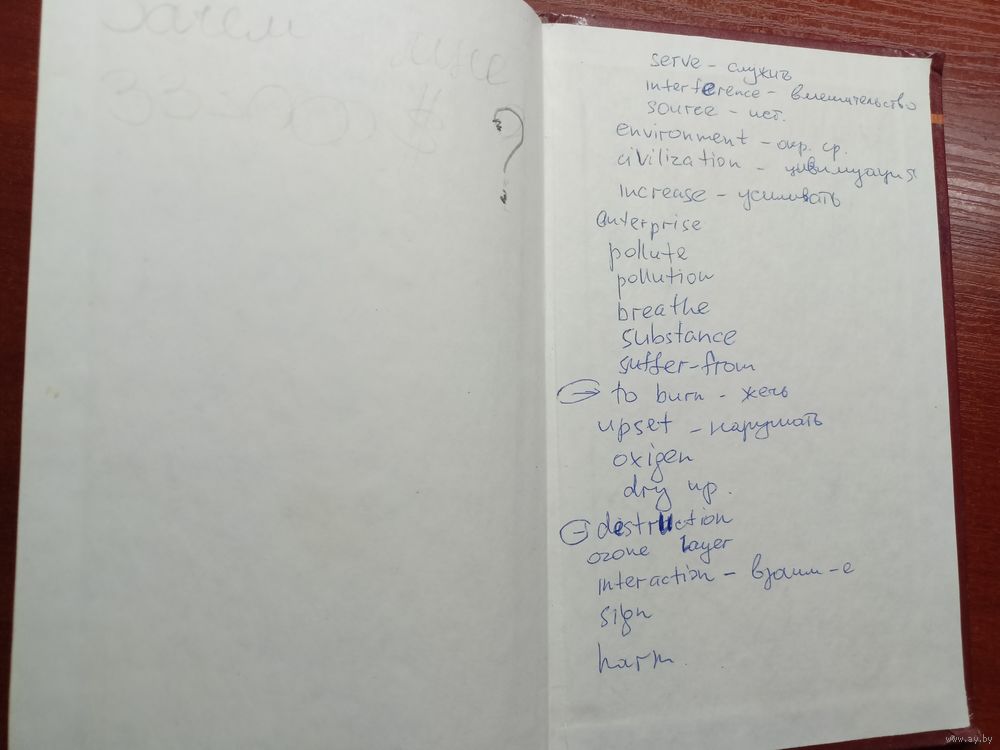 Зачем
мне
?
serve - служить
interference - вмешательство
source - ист.
environment - окр. ср.
civilization - цивилизация
increase - усиливать
enterprise
pollute
pollution
breathe
substance
suffer-from
to burn - жечь
upset - нарушать
oxigen
dry up.
destruction
ozone layer
interaction - взаим-е
sign
harm.
www.ay.by